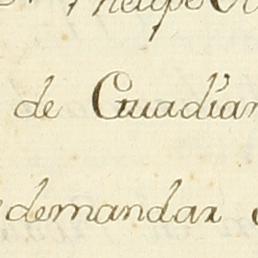 Phelipe
de Guadian
demandar